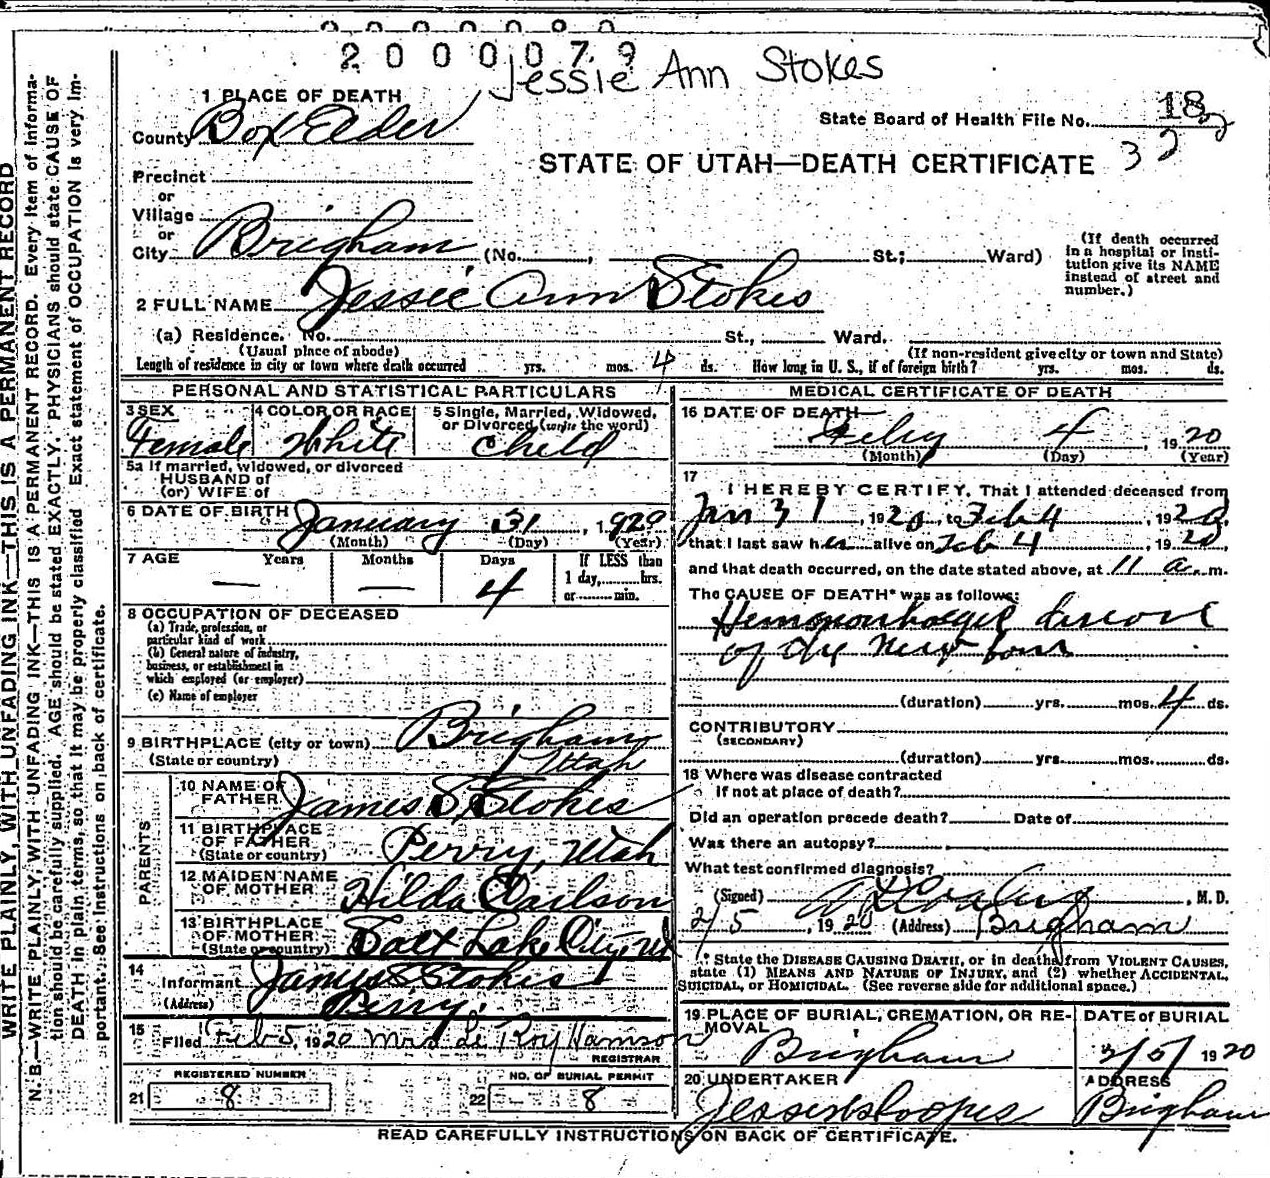 2000079
Jessie Ann Stokes
1 PLACE OF DEATH
County Box Elder
State Board of Health File No. 18
32
STATE OF UTAH—DEATH CERTIFICATE
Precinct
or
Village
or
City Brigham (No. , St.; Ward)
(If death occurred
in a hospital or insti-
tution give its NAME
instead of street and
number.)
2 FULL NAME Jessie Ann Stokes
(a) Residence. No. St., Ward.
(Usual place of abode) (If non-resident give city or town and State)
Length of residence in city or town where death occurred yrs. mos. 4 ds. How long in U. S., if of foreign birth? yrs. mos. ds.
PERSONAL AND STATISTICAL PARTICULARS
3 SEX 4 COLOR OR RACE 5 Single, Married, Widowed,
or Divorced (write the word)
Female White Child
5a If married, widowed, or divorced
HUSBAND of
(or) WIFE of
6 DATE OF BIRTH January 31, 1920
(Month) (Day) (Year)
7 AGE Years Months Days If LESS than
1 day, hrs.
or min.
— — 4
8 OCCUPATION OF DECEASED
(a) Trade, profession, or
particular kind of work
(b) General nature of industry,
business, or establishment in
which employed (or employer)
(c) Name of employer
9 BIRTHPLACE (city or town) Brigham
(State or country) Utah
PARENTS
10 NAME OF
FATHER James S. Stokes
11 BIRTHPLACE
OF FATHER Perry, Utah
(State or country)
12 MAIDEN NAME
OF MOTHER Hilda Carlson
13 BIRTHPLACE
OF MOTHER Salt Lake City, Ut
(State or country)
14
Informant James S Stokes
(Address) Perry.
15
Filed Feb 5, 1920 Mrs Le Roy Hamson
REGISTRAR
REGISTERED NUMBER NO. OF BURIAL PERMIT
21 8 22 8
MEDICAL CERTIFICATE OF DEATH
16 DATE OF DEATH
Feby 4 1920
(Month) (Day) (Year)
17
I HEREBY CERTIFY, That I attended deceased from
Jan 31, 1920, to Feb 4, 1920,
that I last saw her alive on Feb 4, 1920,
and that death occurred, on the date stated above, at 11 a. m.
The CAUSE OF DEATH* was as follows:
Hemorrhagic disease
of the New born
(duration) yrs. mos. 4 ds.
CONTRIBUTORY
(SECONDARY)
(duration) yrs. mos. ds.
18 Where was disease contracted
If not at place of death?
Did an operation precede death? Date of
Was there an autopsy?
What test confirmed diagnosis?
(Signed) , M. D.
2/5, 1920 (Address) Brigham
* State the DISEASE CAUSING DEATH, or in deaths from VIOLENT CAUSES,
state (1) MEANS AND NATURE OF INJURY, and (2) whether ACCIDENTAL,
SUICIDAL, or HOMICIDAL. (See reverse side for additional space.)
19 PLACE OF BURIAL, CREMATION, OR RE-
MOVAL
DATE of BURIAL
Brigham 2/5/ 1920
20 UNDERTAKER ADDRESS
Brigham
READ CAREFULLY INSTRUCTIONS ON BACK OF CERTIFICATE.
WRITE PLAINLY, WITH UNFADING INK—THIS IS A PERMANENT RECORD
N. B.—WRITE PLAINLY, WITH UNFADING INK—THIS IS A PERMANENT RECORD. Every item of informa-
tion should be carefully supplied. AGE should be stated EXACTLY. PHYSICIANS should state CAUSE OF
DEATH in plain terms, so that it may be properly classified. Exact statement of OCCUPATION is very im-
portant. See instructions on back of certificate.